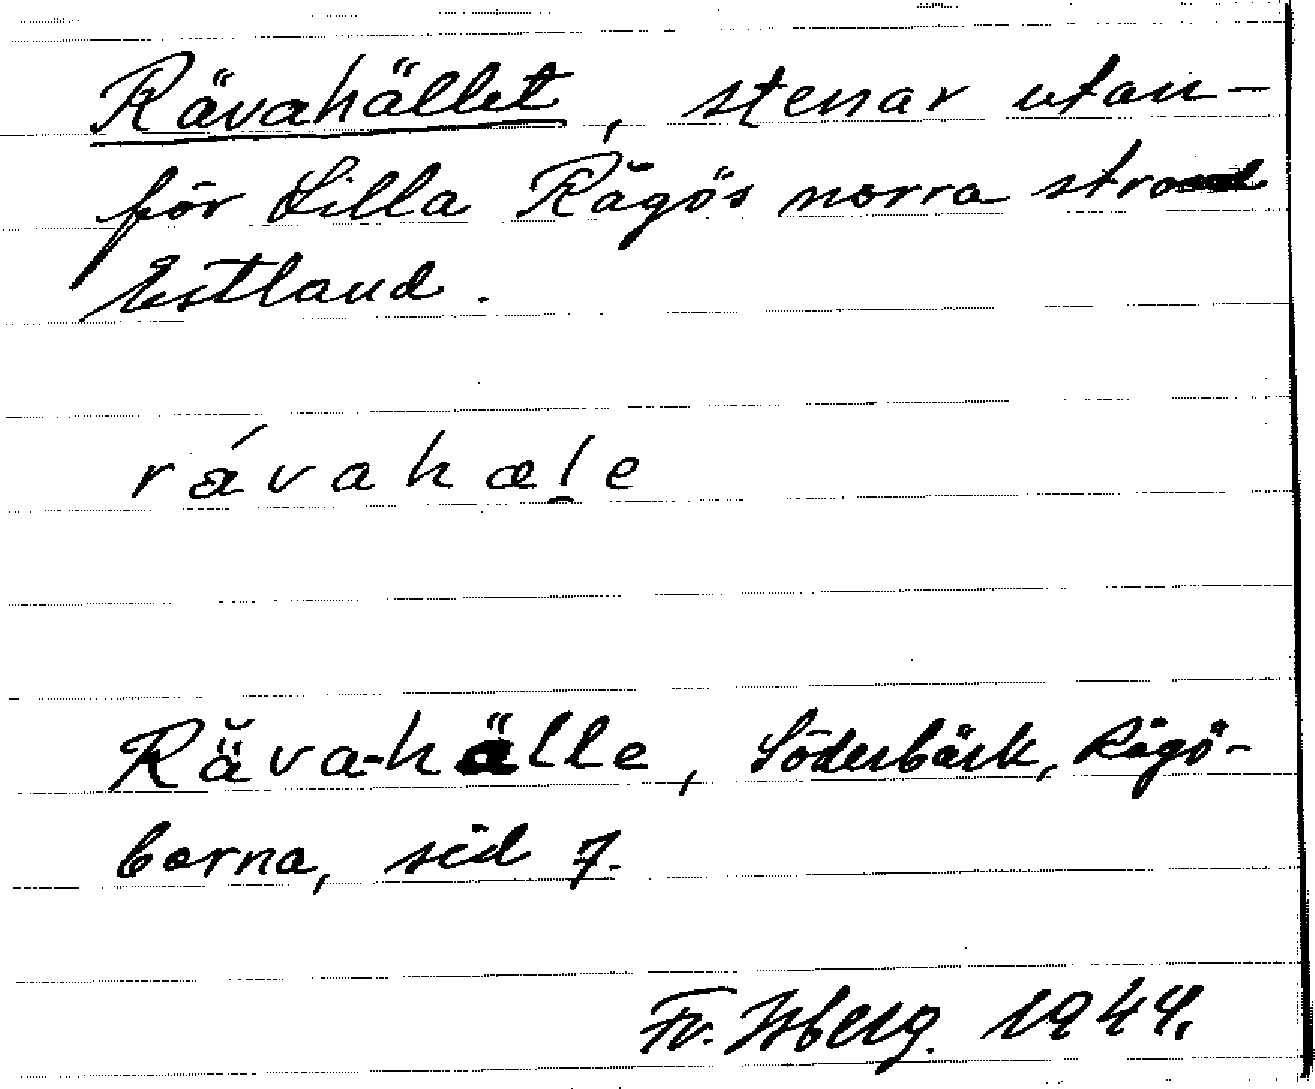 Rävahället, stenar utan-
för Lilla Rågös norra strand
Estland.
rávahæḷe
Rä̆va-hälle, Söderbäck, Rågö-
borna, sid 7.
Fr. Isberg. 1944.